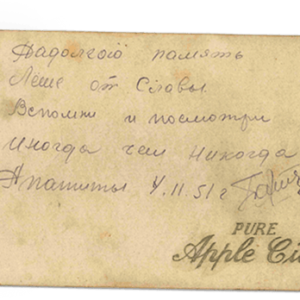 Надолгою память
Леше от Славы
Вспомни и посмотри
иногда чем никогда
Апатиты 4.11.51г
PURE
Apple Ci